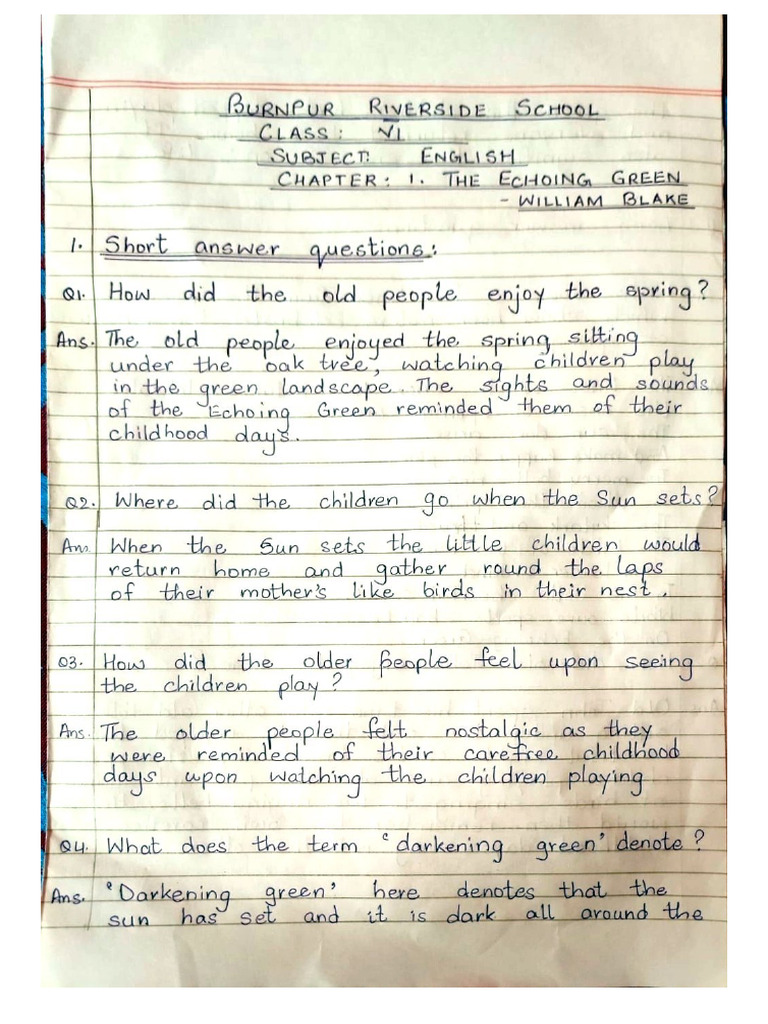 BURNPUR RIVERSIDE SCHOOL
CLASS: VI
SUBJECT: ENGLISH
CHAPTER: 1. THE ECHOING GREEN
- WILLIAM BLAKE
1. Short answer questions:
Q1. How did the old people enjoy the spring?
Ans. The old people enjoyed the spring sitting
under the oak tree, watching children play
in the green landscape. The sights and sounds
of the Echoing Green reminded them of their
childhood days.
Q2. Where did the children go when the Sun sets?
Ans. When the Sun sets the little children would
return home and gather round the laps
of their mother's like birds in their nest.
Q3. How did the older people feel upon seeing
the children play?
Ans. The older people felt nostalgic as they
were reminded of their carefree childhood
days upon watching the children playing
Q4. What does the term 'darkening green' denote?
Ans. 'Darkening green' here denotes that the
sun has set and it is dark all around the